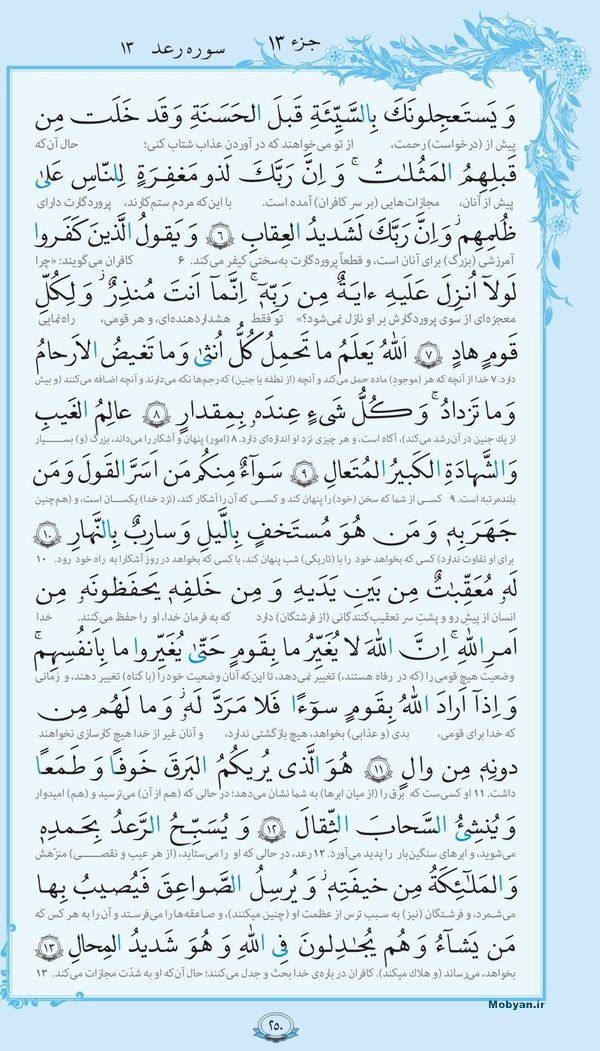 جزء ۱۳
سوره رعد ۱۳
وَ یَستَعجِلونَكَ بِالسَّیِّئَةِ قَبلَ الحَسَنَةِ وَ قَد خَلَت مِن
پیش از (درخواست) رحمت، از تو می‌خواهند که در آوردن عذاب شتاب کنی؛ حال آن‌که
قَبلِهِمُ المَثُلٰتُ ۚ وَ اِنَّ رَبَّكَ لَذو مَغفِرَةٍ لِلنّاسِ عَلیٰ
پیش از آنان، مجازات‌هایی (بر سر کافران) آمده است. با این‌که مردم ستم‌کارند، پروردگارت دارای
ظُلمِهِم ۖ وَ اِنَّ رَبَّكَ لَشَدیدُ العِقابِ ﴿۶﴾ وَ یَقولُ الَّذینَ کَفَروا
آمرزشی (بزرگ) برای آنان است، و قطعاً پروردگارت به‌سختی کیفر می‌کند. ۶ کافران می‌گویند: «چرا
لَولاۤ اُنزِلَ عَلَیهِ ءایَةٌ مِن رَبِّهٖ ۗ اِنَّماۤ اَنتَ مُنذِرٌ ۖ وَ لِکُلِّ
معجزه‌ای از سوی پروردگارش بر او نازل نمی‌شود؟» تو فقط هشداردهنده‌ای، و هر قومی، راه‌نمایی
قَومٍ هادٍ ﴿۷﴾ اَللهُ یَعلَمُ ما تَحمِلُ کُلُّ اُنثیٰ وَ ما تَغیضُ الاَرحامُ
دارد. ۷ خدا از آنچه که هر (موجودِ) ماده حمل می‌کند و آنچه (از نطفه یا جنین) که رحم‌ها نگه می‌دارند و آنچه اضافه می‌کنند (و بیش
وَ ما تَزدادُ ۖ وَ کُلُّ شَیءٍ عِندَهٗ بِمِقدارٍ ﴿۸﴾ عالِمُ الغَیبِ
از یك جنین در آن رشد می‌کند)، آگاه است، و هر چیزی نزد او اندازه‌ای دارد. ۸ (امور) پنهان و آشکار را می‌داند، بزرگ (و) بسیار
وَ الشَّهادَةِ الکَبیرُ المُتَعالِ ﴿۹﴾ سَوآءٌ مِنکُم مَن اَسَرَّ القَولَ وَ مَن
بلندمرتبه است. ۹ کسی از شما که سخن (خود) را پنهان کند و کسی که آن را آشکار کند، (نزد خدا) یکسان است، و (هم‌چنین
جَهَرَ بِهٖ وَ مَن هُوَ مُستَخفٍ بِالَّیلِ وَ سارِبٌ بِالنَّهارِ ﴿۱۰﴾
برای او تفاوت ندارد) کسی که بخواهد خود را با (تاریکی) شب پنهان کند، با کسی که بخواهد در روز آشکارا به راه خود رود. ۱۰
لَهٗ مُعَقِّبٰتٌ مِن بَینِ یَدَیهِ وَ مِن خَلفِهٖ یَحفَظونَهٗ مِن
انسان از پیش رو و پشتِ سر تعقیب‌کنندگانی (از فرشتگان) دارد که به فرمان خدا، او را حفظ می‌کنند. خدا
اَمرِ اللهِ ۗ اِنَّ اللهَ لا یُغَیِّرُ ما بِقَومٍ حَتّیٰ یُغَیِّروا ما بِاَنفُسِهِم ۗ
وضعیت هیچ قومی را (که در رفاه هستند،) تغییر نمی‌دهد، تا این‌که آنان وضعیت خود را (با گناه) تغییر دهند، و زمانی
وَ اِذاۤ اَرادَ اللهُ بِقَومٍ سوٓءًا فَلا مَرَدَّ لَهٗ ۚ وَ ما لَهُم مِن
که خدا برای قومی، بدی (و عذابی) بخواهد، هیچ بازگشتی ندارد، و آنان غیر از خدا هیچ کارسازی نخواهند
دونِهٖ مِن والٍ ﴿۱۱﴾ هُوَ الَّذی یُریکُمُ البَرقَ خَوفًا وَ طَمَعًا
داشت. ۱۱ او کسی‌ست که برق را (از میان ابرها) به شما نشان می‌دهد؛ در حالی که (هم از آن) می‌ترسید و (هم) امیدوار
وَ یُنشِئُ السَّحابَ الثِّقالَ ﴿۱۲﴾ وَ یُسَبِّحُ الرَّعدُ بِحَمدِهٖ
می‌شوید، و ابرهای سنگین‌بار را پدید می‌آورد. ۱۲ رعد، در حالی که او را می‌ستاید، (از هر عیب و نقصی) منزّهش
وَ المَلٰٓئِکَةُ مِن خیفَتِهٖ وَ یُرسِلُ الصَّواعِقَ فَیُصیبُ بِها
می‌شمرد، و فرشتگان (نیز) به سبب ترس از عظمت او (چنین میکنند)، و صاعقه‌ها را می‌فرستد و آن را به هر کس که
مَن یَشآءُ وَ هُم یُجٰدِلونَ فِی اللهِ وَ هُوَ شَدیدُ المِحالِ ﴿۱۳﴾
بخواهد، می‌رساند (و هلاك میکند). کافران در باره‌ی خدا بحث و جدل می‌کنند؛ حال آن‌که او به شدّت مجازات می‌کند. ۱۳
Mobyan.ir
۲۵۰